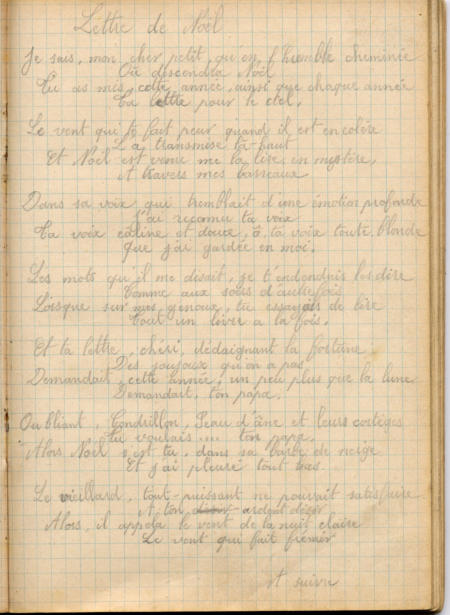 Lettre de Noël
Je sais, mon cher petit, qu'en l'humble cheminée
Où descendra Noël
Tu as mis cette année, ainsi que chaque année
Ta lettre pour le ciel.
Le vent qui te fait peur quand il est en colère
L'a transmise là-haut
Et Noël est venu me la lire en mystère,
A travers mes barreaux.
Dans sa voix qui tremblait d'une émotion profonde
J'ai reconnu ta voix
Ta voix câline et douce, ô ta voix toute blonde
Que j'ai gardée en moi.
Les mots qu'il me disait, je t'entendais les dire
Comme aux soirs d'autrefois
Lorsque sur mes genoux, tu essayais de lire
Tout un livre à la fois.
Et ta lettre, chéri, dédaignant la fortune
Des joujoux qu'on a pas
Demandait, cette année, un peu plus que la lune
Demandait, ton papa.
Oubliant, Cendrillon, Peau d'âne et leurs cortèges
Tu voulais.... ton papa.
Alors Noël s'est tu, dans sa barbe de neige
Et j'ai pleuré tout bas.
Le vieillard, tout-puissant ne pouvait satisfaire
A ton ardent désir
Alors, il appela le vent de la nuit claire
Le vent qui fait frémir
à suivre